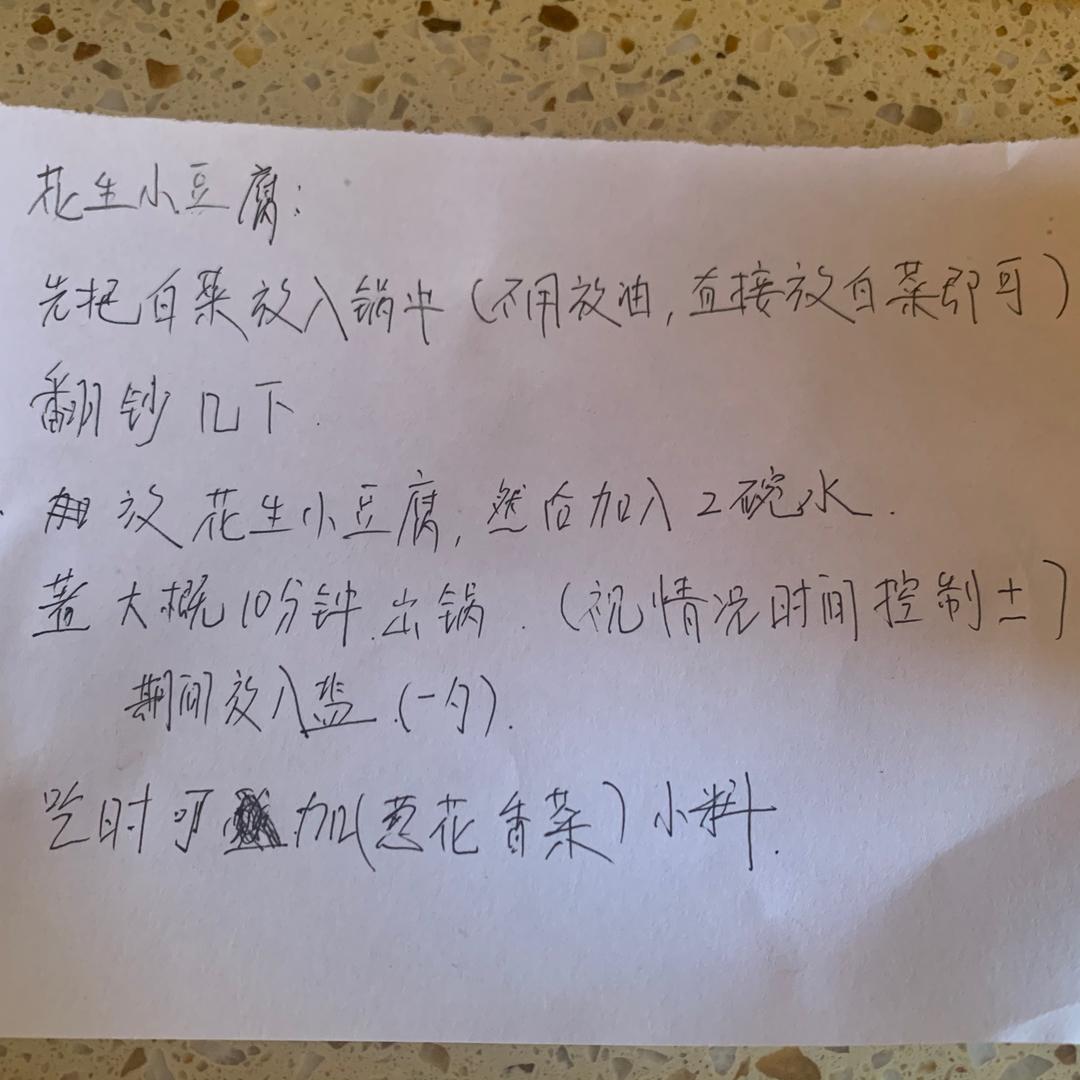 花生小豆腐:
先把白菜放入锅中(不用放油,直接放白菜即可)
翻钞几下.
放花生小豆腐,然后加入2碗水.
著大概10分钟.出锅.(视情况时间控制±)
期间放入盐.(一勺).
吃时可加(葱花香菜)小料.